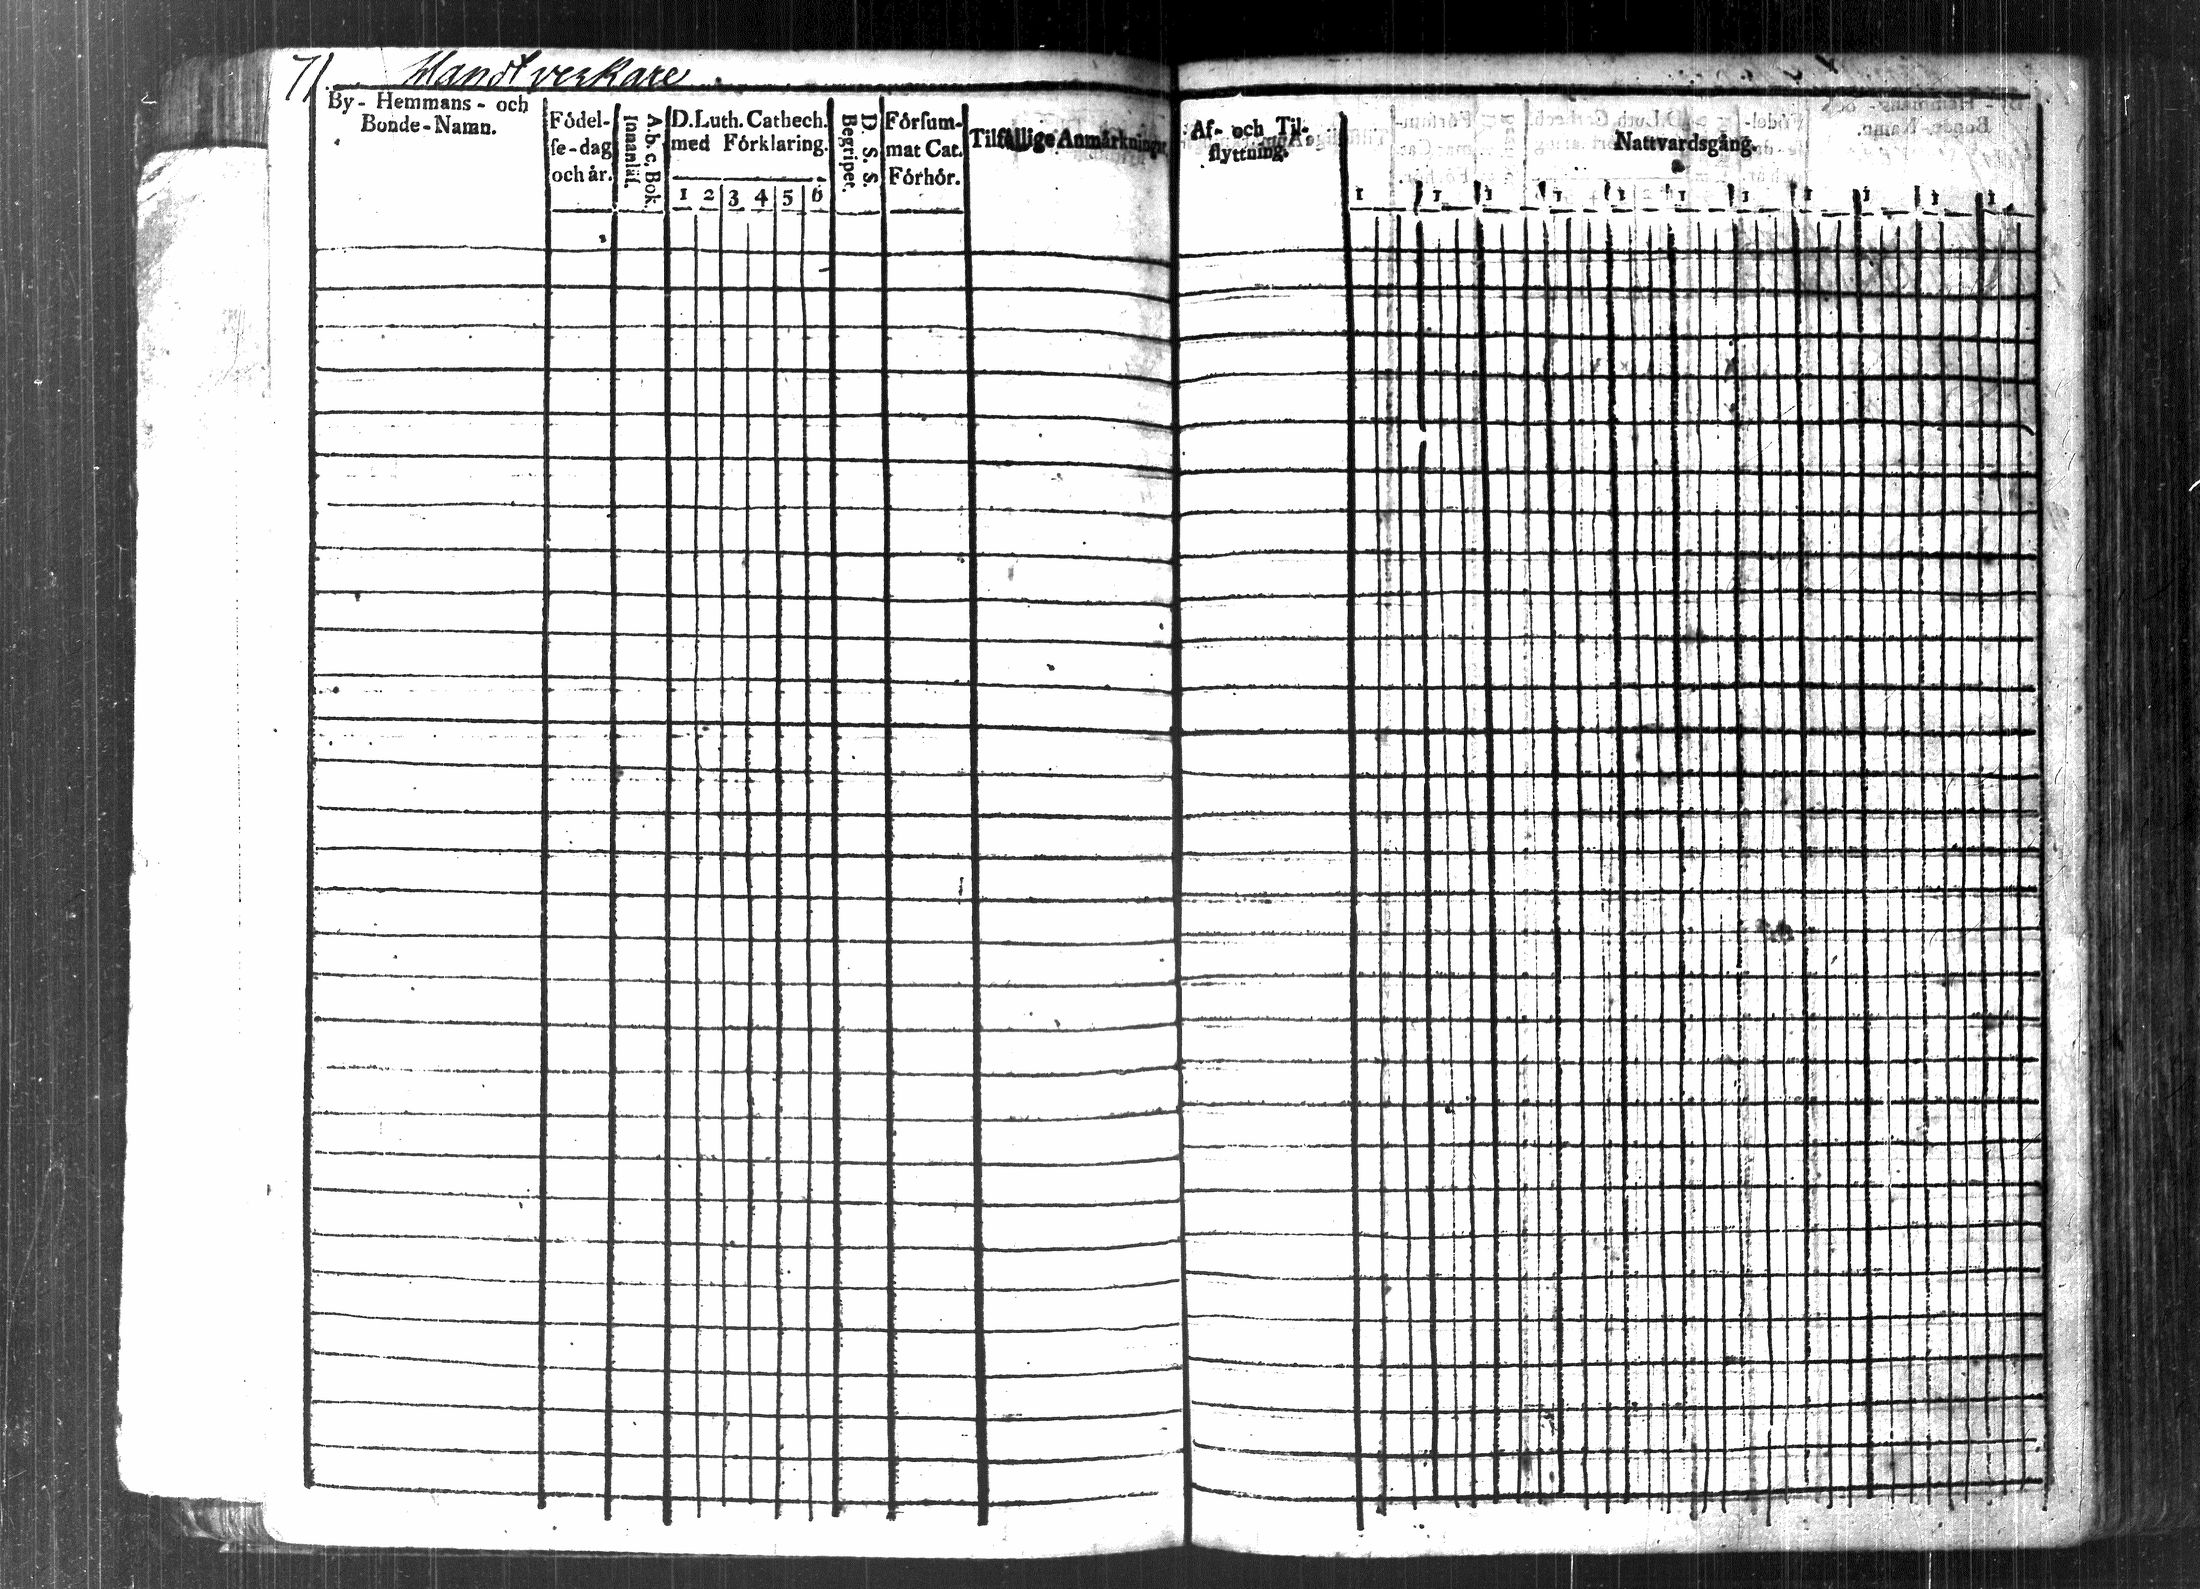 71. Handtverkare
By- Hemmans- och
Bonde-Namn.
Födel-
se-dag
och år.
A. b. c. Bok.
Innanläs.
D. Luth. Cathech.
med Förklaring.
1 2 3 4 5 6
D. S. S.
Begriper.
Försum-
mat Cat.
Förhör.
Tilfällige Anmärkningar
Af- och Til-
flyttning.
Nattvardsgång.
1 1 1 1 1 1 1 1 1 1 1